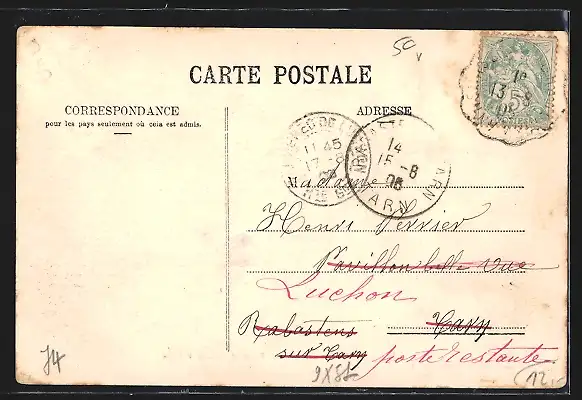 50
CARTE POSTALE
CORRESPONDANCE
pour les pays seulement où cela est admis.
ADRESSE
13 -8
11 45
17 -8
14
15 -8
05
TARN
Madame
Henri Verrier
Pavillon belle vue
Luchon
Rabastens
Tarn
sur Tarn
poste restante
J4
9X8L
12.-